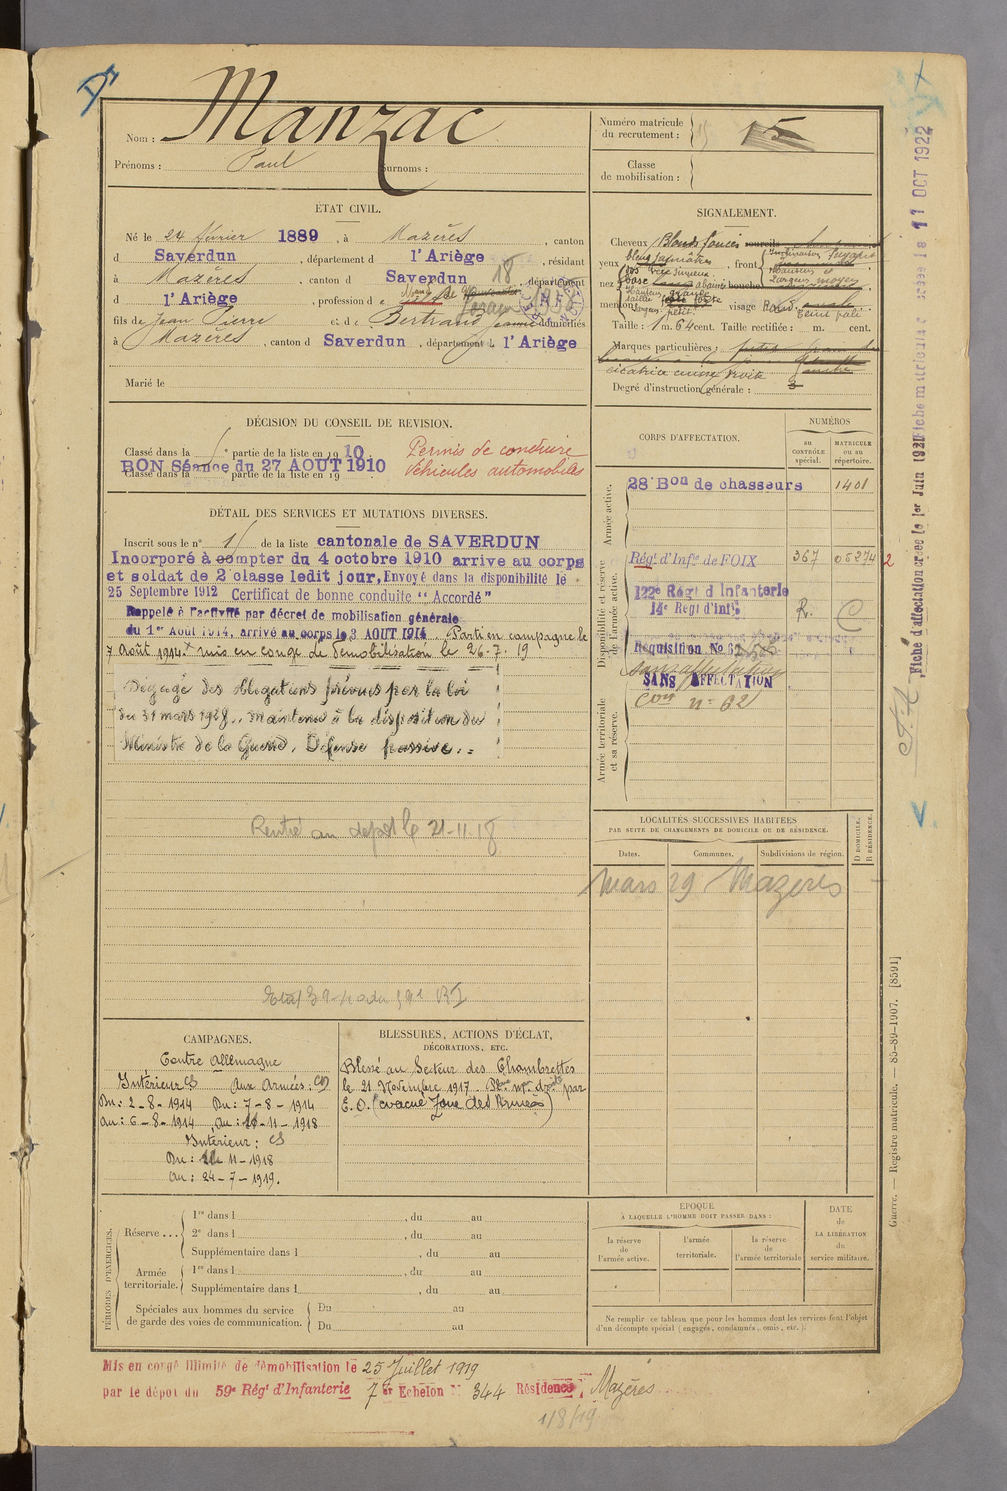 Manzac
Nom :
Prénoms : Paul Surnoms :
ÉTAT CIVIL.
Né le 24 février 1889, à Mazères, canton
d Saverdun, département d l'Ariège, résidant
à Mazères, canton d Saverdun, département
d l'Ariège, profession d
fils de Jean Pierre et de Bertrand Jeanne domiciliés
à Mazères, canton d Saverdun, département d l'Ariège
Marié le
DÉCISION DU CONSEIL DE REVISION.
Classé dans la 1e partie de la liste en 1910
BON Séance du 27 AOUT 1910
Classé dans la partie de la liste en 19
Permis de conduire
Véhicules automobiles
DÉTAIL DES SERVICES ET MUTATIONS DIVERSES.
Inscrit sous le n° 15 de la liste cantonale de SAVERDUN
Incorporé à compter du 4 octobre 1910 arrive au corps
et soldat de 2e classe ledit jour. Envoyé dans la disponibilité le
25 Septembre 1912 Certificat de bonne conduite “ Accordé ”
Rappelé à l'activité par décret de mobilisation générale
du 1er Août 1914, arrivé au corps le 3 AOUT 1914. Parti en campagne le
7 Août 1914. mis en congé de démobilisation le 26.7.19
Dégagé des obligations prévues par la loi
du 31 mars 1928, maintenu à la disposition du
Ministre de la Guerre, Défense passive.
Rentré au dépôt le 21-11-18
CAMPAGNES.
Contre Allemagne
Intérieur CS Aux Armées :
Du : 2-8-1914 Du : 7-8-1914
au : 6-8-1914 au : 11-1918
Intérieur : CS
Du : 11-1918
au : 24-7-1919.
BLESSURES, ACTIONS D'ÉCLAT,
DÉCORATIONS, ETC.
Blessé au Secteur des Chambrettes
le 21 Novembre 1917. par
E. O. (évacué Zone des Armées)
PÉRIODES D'EXERCICES.
Réserve . . .
1re dans l , du au
2e dans l , du au
Supplémentaire dans l , du au
Armée territoriale.
1re dans l , du au
Supplémentaire dans l , du au
Spéciales aux hommes du service
de garde des voies de communication.
Du au
Du au
Mis en congé illimité de démobilisation le 25 Juillet 1919
par le dépôt du 59e Régt d'Infanterie 7e Echelon N° 344 Résidence Mazères
1/8/19
Numéro matricule
du recrutement : 15
Classe
de mobilisation :
SIGNALEMENT.
Cheveux Blonds foncés sourcils
yeux , front
nez bouche
menton visage
Taille : 1 m. 64 cent. Taille rectifiée : m. cent.
Marques particulières :
cicatrice cuisse droite
Degré d'instruction générale : 3
CORPS D'AFFECTATION.
NUMÉROS
au CONTRÔLE spécial.
MATRICULE ou au répertoire.
Armée active.
28e Bon de chasseurs 1401
Disponibilité et réserve de l'armée active.
Régt d'Infie de FOIX 367 05274 2
122e Régt d'Infanterie
14e Régt d'infie R. C
Réquisition No
sans affectation
SANS AFFECTATION
Armée territoriale et sa réserve.
LOCALITÉS SUCCESSIVES HABITÉES
PAR SUITE DE CHANGEMENTS DE DOMICILE OU DE RÉSIDENCE.
Dates. Communes. Subdivisions de région.
D DOMICILE.
R RÉSIDENCE.
Mars 29 Mazères
ÉPOQUE
À LAQUELLE L'HOMME DOIT PASSER DANS :
la réserve de l'armée active.
l'armée territoriale.
la réserve de l'armée territoriale
DATE de LA LIBÉRATION du service militaire.
Ne remplir ce tableau que pour les hommes dont les services font l'objet
d'un décompte spécial (engagés, condamnés, omis, etc.).
Guerre. — Registre matricule. — 85-89-1907. [8591]